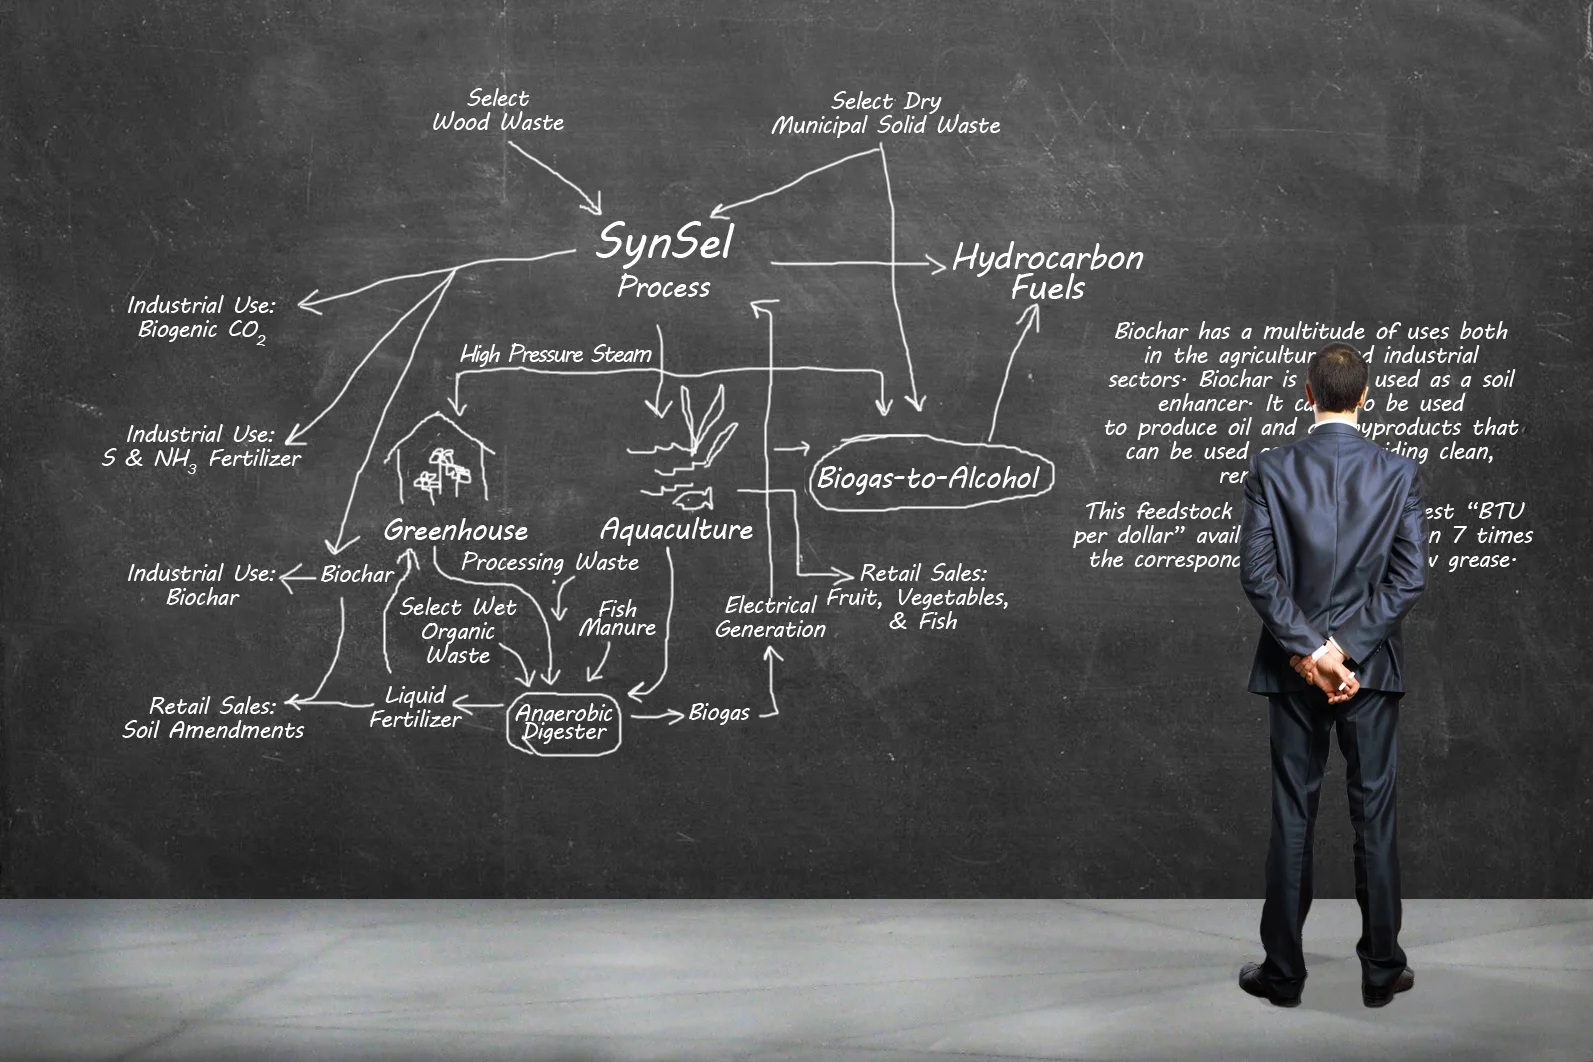 Select
Wood Waste
Select Dry
Municipal Solid Waste
SynSel
Process
Hydrocarbon
Fuels
Industrial Use:
Biogenic CO2
High Pressure Steam
Industrial Use:
S & NH3 Fertilizer
Biogas-to-Alcohol
Greenhouse
Aquaculture
Processing Waste
Industrial Use:
Biochar
Biochar
Select Wet
Organic
Waste
Fish
Manure
Electrical
Generation
Retail Sales:
Fruit, Vegetables,
& Fish
Retail Sales:
Soil Amendments
Liquid
Fertilizer
Anaerobic
Digester
Biogas
Biochar has a multitude of uses both
in the industrial
sectors. Biochar is used as a soil
enhancer. It be used
to produce oil and that
can be used clean,
This feedstock "BTU
per dollar" 7 times
the grease.